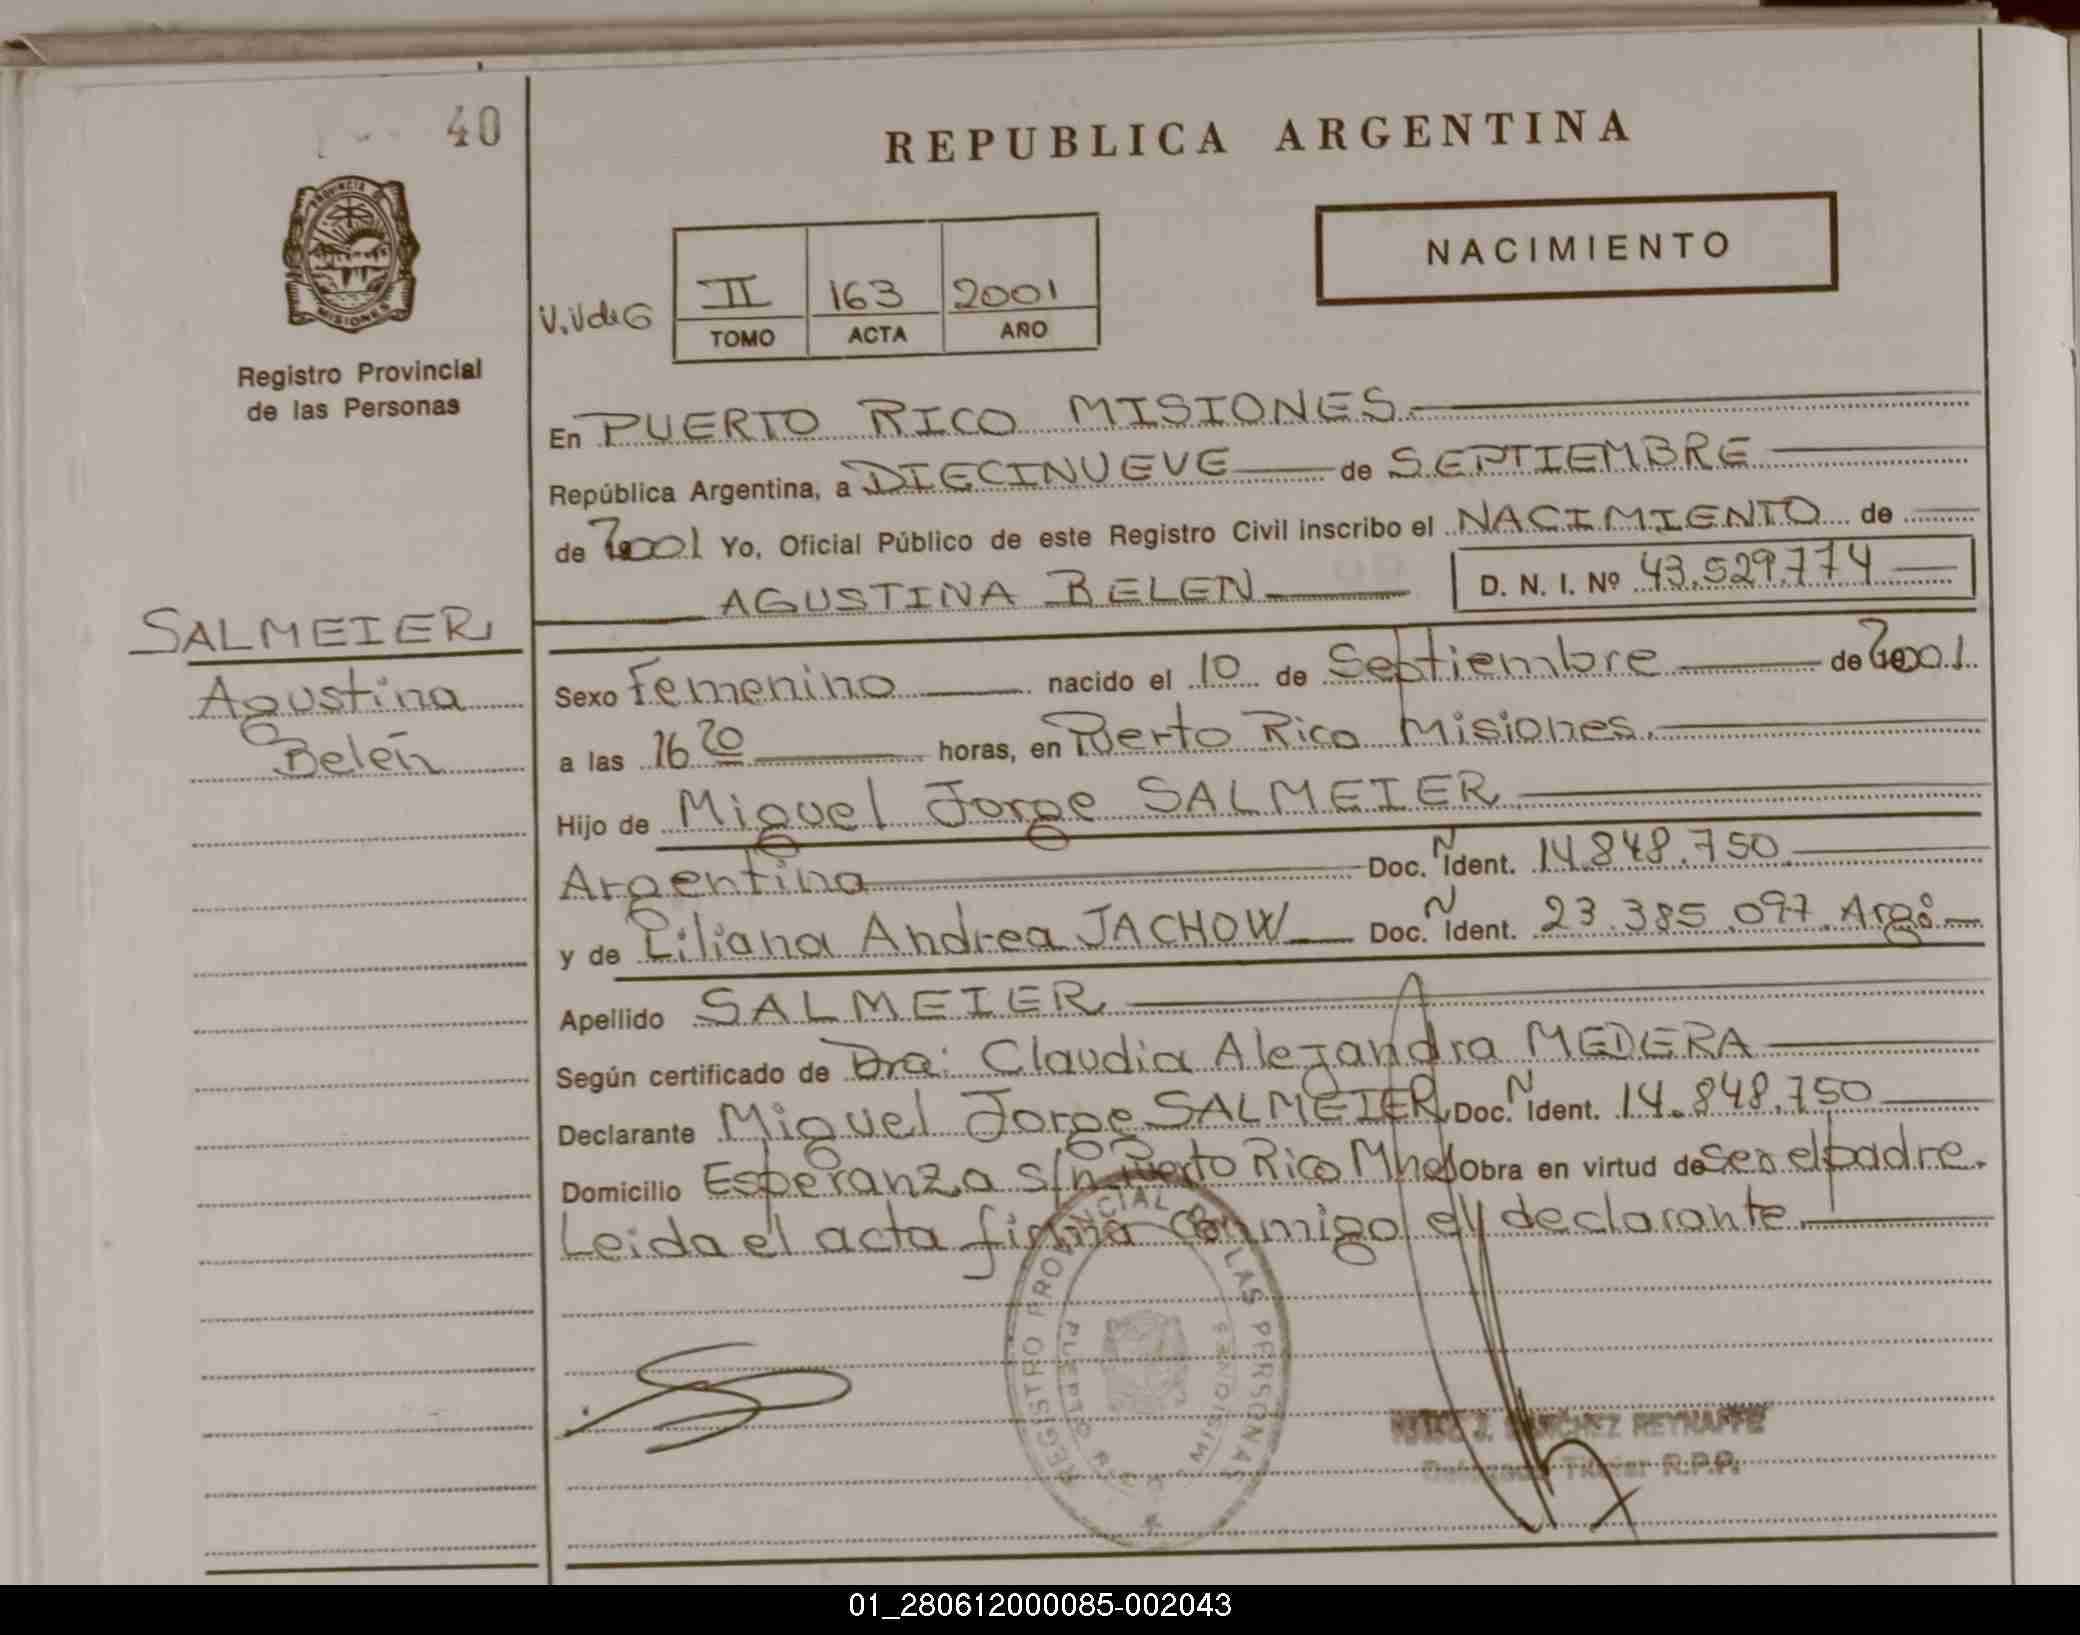 40
REPUBLICA ARGENTINA
PROVINCIA DE
MISIONES
NACIMIENTO
V.V de G
II 163 2001
TOMO ACTA AÑO
Registro Provincial
de las Personas
En PUERTO RICO MISIONES
República Argentina, a DIECINUEVE de SEPTIEMBRE
de 2001 Yo, Oficial Público de este Registro Civil inscribo el NACIMIENTO de
AGUSTINA BELEN D. N. I. Nº 43.529.774
SALMEIER
Agustina
Belén
Sexo Femenino nacido el 10 de Septiembre de 2001
a las 16 20 horas, en Puerto Rico Misiones.
Hijo de Miguel Jorge SALMEIER
Argentina Doc. N Ident. 14.848.750
y de Liliana Andrea JACHOW Doc. N Ident. 23.385.097 Arg.
Apellido SALMEIER
Según certificado de Dra: Claudia Alejandra MEDERA
Declarante Miguel Jorge SALMEIER Doc. N Ident. 14.848.750
Domicilio Esperanza s/n Puerto Rico Mnes Obra en virtud de ser el padre.
Leida el acta firma conmigo el declarante
REGISTRO PROVINCIAL LAS PERSONAS
PUERTO RICO MISIONES
SANCHEZ REYNAFFE
Titular R.P.P.
01_280612000085-002043